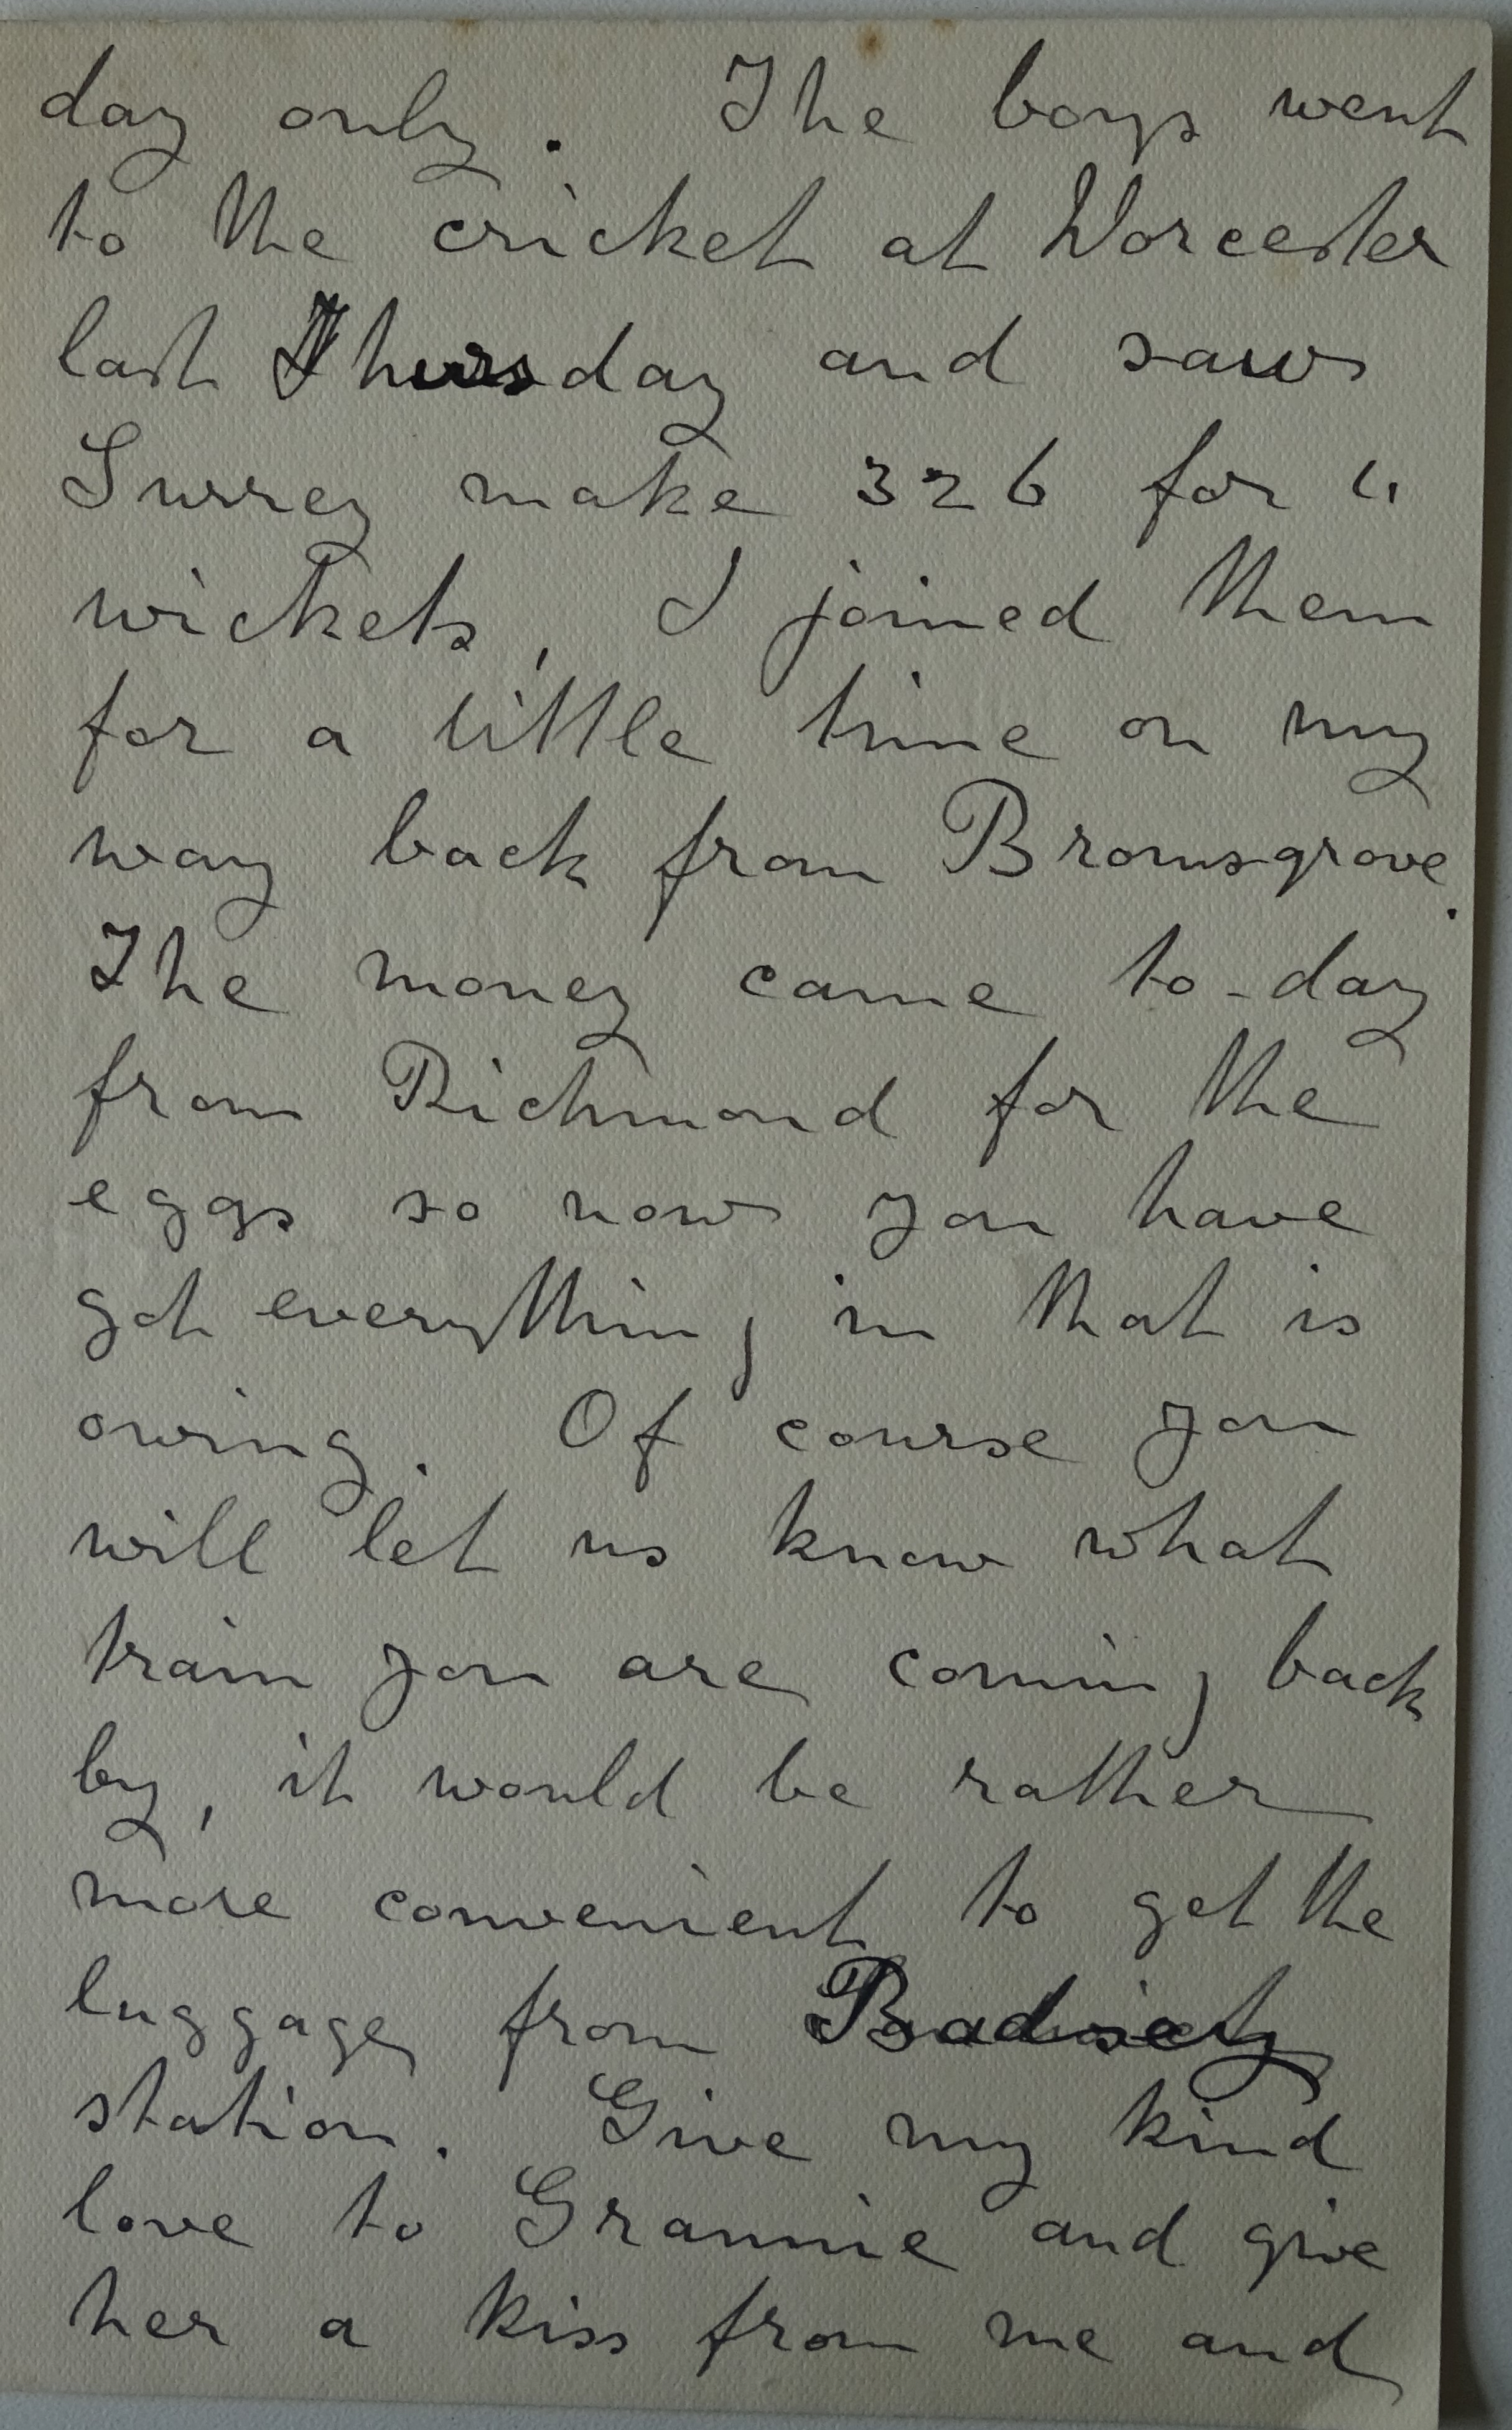 day only. The boys went
to the cricket at Worcester
last Thursday and saw
Surrey make 326 for 4
wickets, I joined them
for a little time on my
way back from Bromsgrove.
The money came to-day
from Richmond for the
eggs so now you have
got everything in that is
owing. Of course you
will let us know what
train you are coming back
by, it would be rather
more convenient to get the
luggage from
station. Give my kind
love to Grannie and give
her a kiss from me and